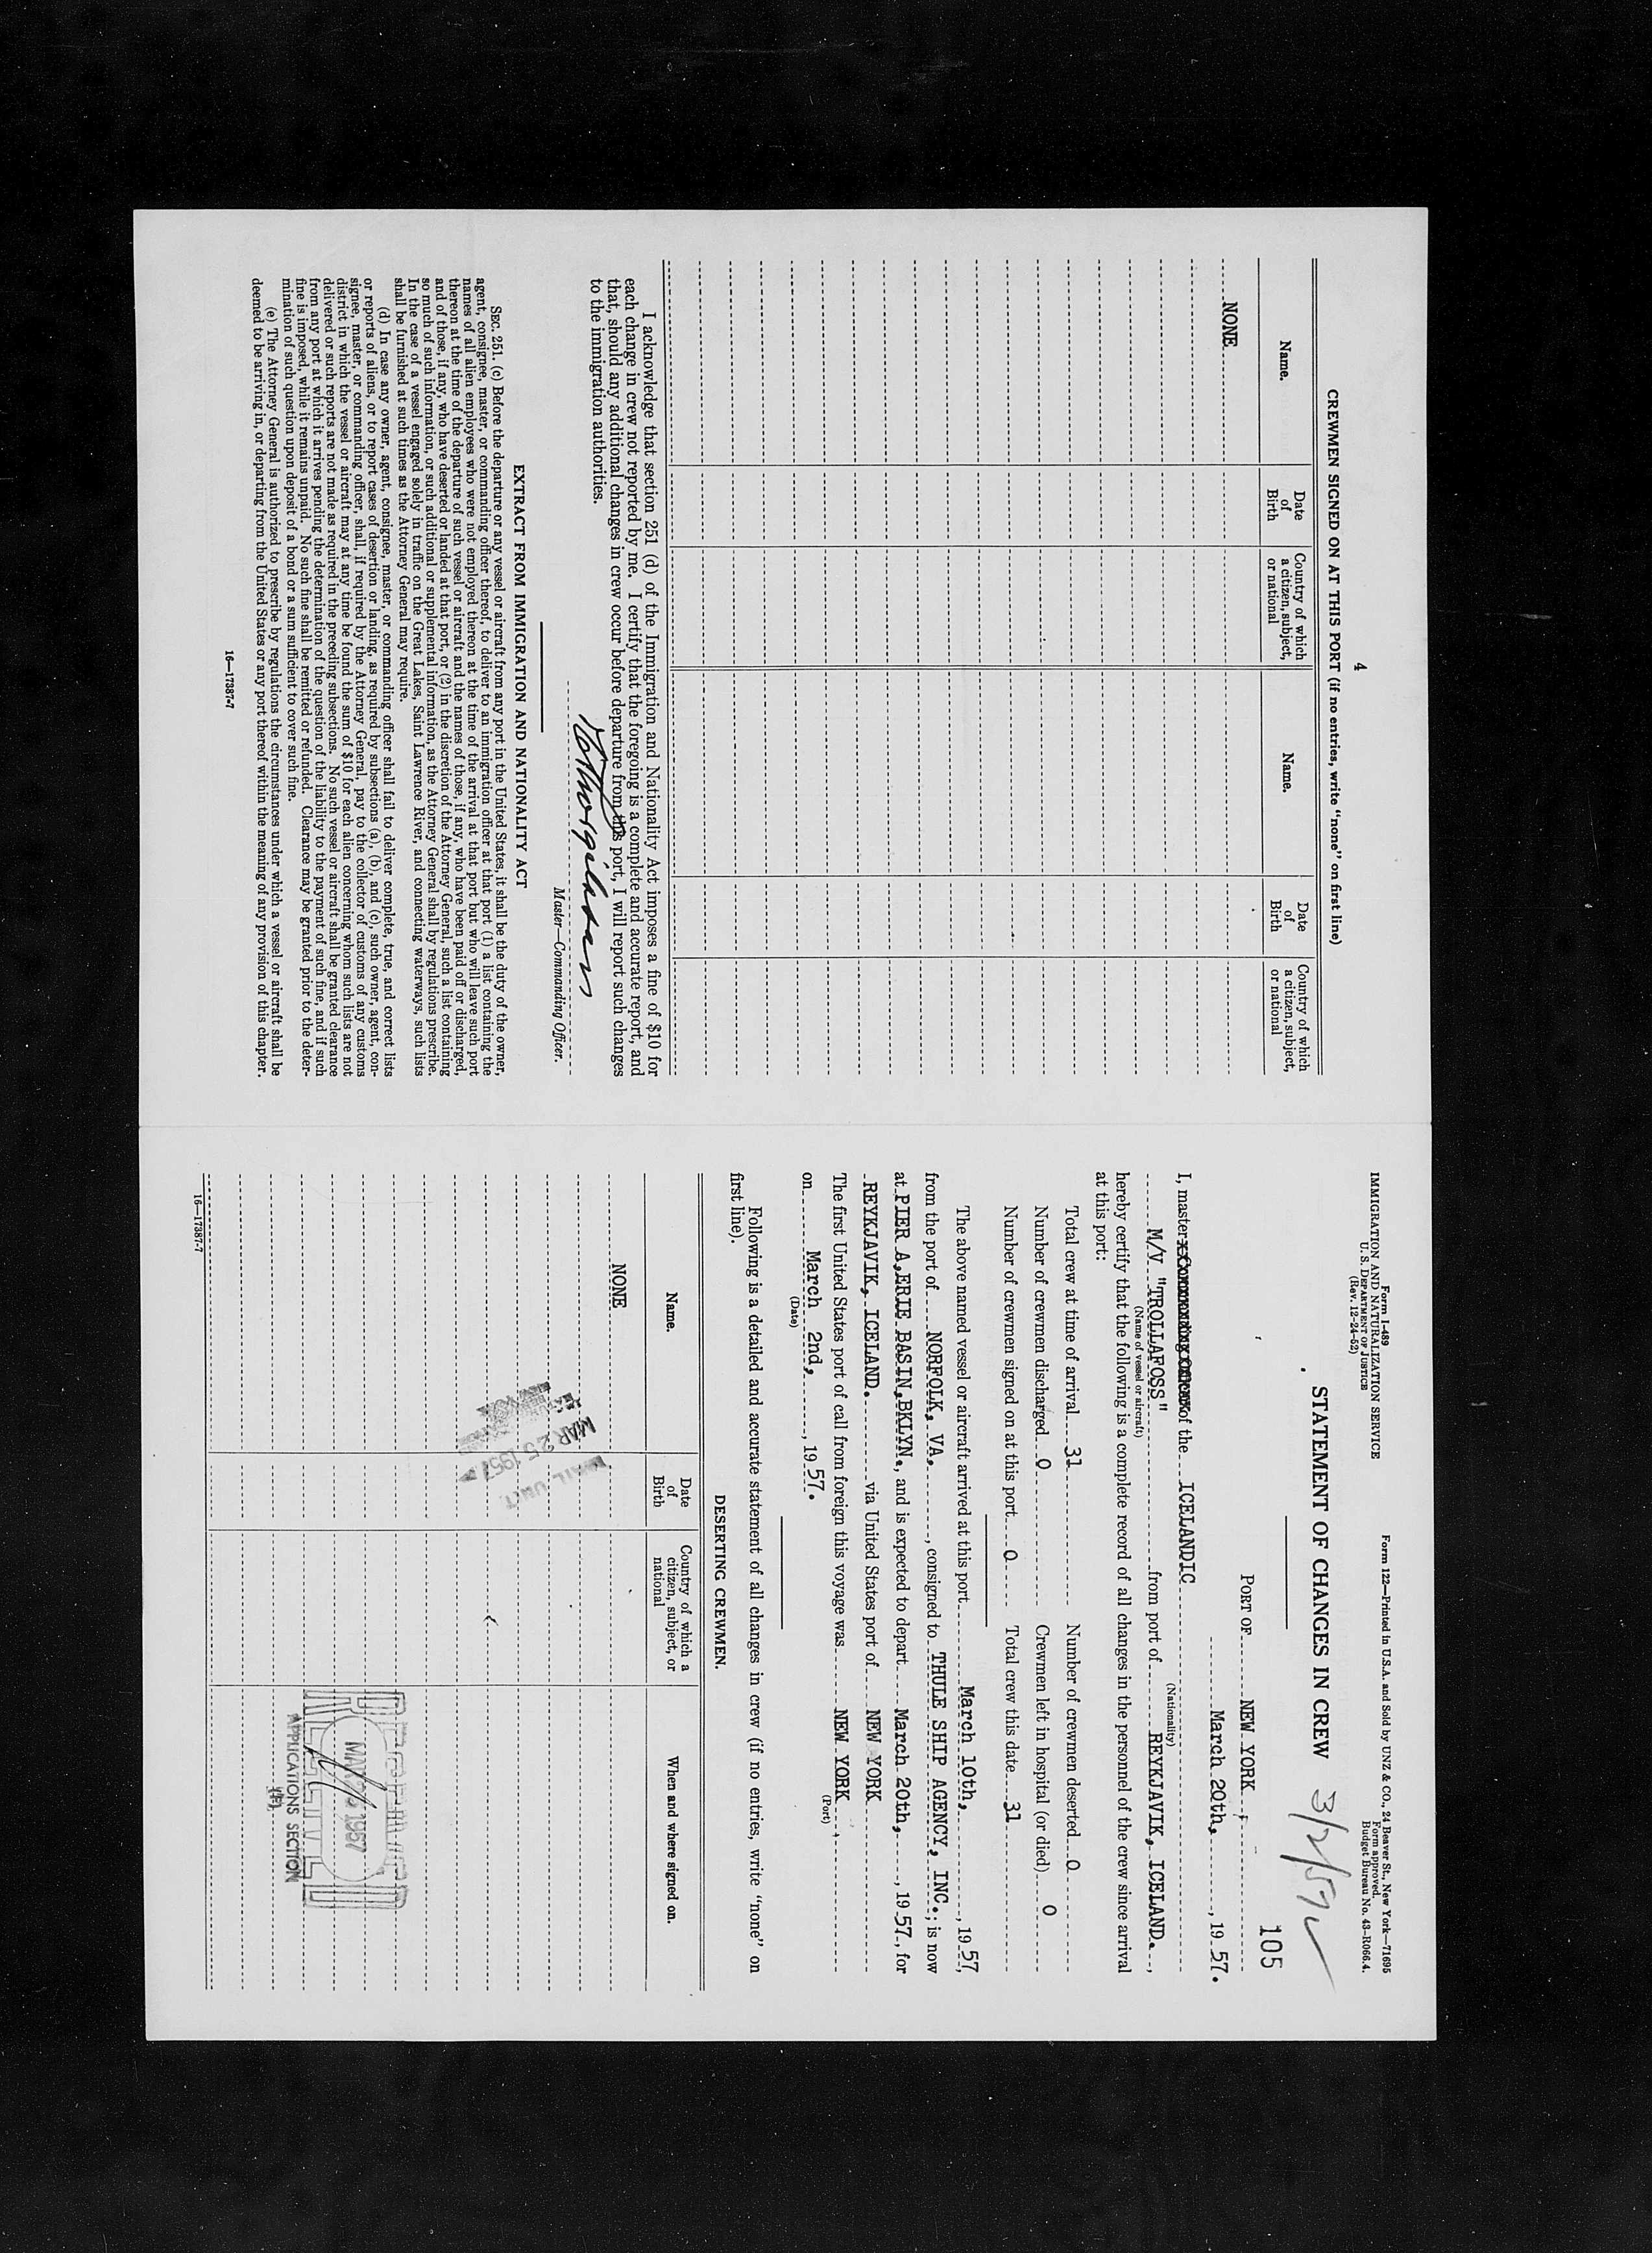 4
CREWMEN SIGNED ON AT THIS PORT (if no entries, write "none" on first line)
Name. Date of Birth Country of which a citizen, subject, or national Name. Date of Birth Country of which a citizen, subject, or national
NONE
I acknowledge that section 251 (d) of the Immigration and Nationality Act imposes a fine of $10 for
each change in crew not reported by me. I certify that the foregoing is a complete and accurate report, and
that, should any additional changes in crew occur before departure from this port, I will report such changes
to the immigration authorities.
Master—Commanding Officer.
EXTRACT FROM IMMIGRATION AND NATIONALITY ACT
SEC. 251. (c) Before the departure or any vessel or aircraft from any port in the United States, it shall be the duty of the owner,
agent, consignee, master, or commanding officer thereof, to deliver to an immigration officer at that port (1) a list containing the
names of all alien employees who were not employed thereon at the time of the arrival at that port but who will leave such port
thereon at the time of the departure of such vessel or aircraft and the names of those, if any, who have been paid off or discharged,
and of those, if any, who have deserted or landed at that port, or (2) in the discretion of the Attorney General, such a list containing
so much of such information, or such additional or supplemental information, as the Attorney General shall by regulations prescribe.
In the case of a vessel engaged solely in traffic on the Great Lakes, Saint Lawrence River, and connecting waterways, such lists
shall be furnished at such times as the Attorney General may require.
(d) In case any owner, agent, consignee, master, or commanding officer shall fail to deliver complete, true, and correct lists
or reports of aliens, or to report cases of desertion or landing, as required by subsections (a), (b), and (c), such owner, agent, con-
signee, master, or commanding officer, shall, if required by the Attorney General, pay to the collector of customs of any customs
district in which the vessel or aircraft may at any time be found the sum of $10 for each alien concerning whom such lists are not
delivered or such reports are not made as required in the preceding subsections. No such vessel or aircraft shall be granted clearance
from any port at which it arrives pending the determination of the question of the liability to the payment of such fine, and if such
fine is imposed, while it remains unpaid. No such fine shall be remitted or refunded. Clearance may be granted prior to the deter-
mination of such question upon deposit of a bond or a sum sufficient to cover such fine.
(e) The Attorney General is authorized to prescribe by regulations the circumstances under which a vessel or aircraft shall be
deemed to be arriving in, or departing from the United States or any port thereof within the meaning of any provision of this chapter.
16—17387-7
Form I-489
IMMIGRATION AND NATURALIZATION SERVICE
U. S. DEPARTMENT OF JUSTICE
(Rev. 12-24-52)
Form 122—Printed in U.S.A. and Sold by UNZ & CO., 24 Beaver St., New York—71695
Form approved.
Budget Bureau No. 43-R066.4.
STATEMENT OF CHANGES IN CREW
105
PORT OF NEW YORK
March 20th, , 19 57.
I, master of the ICELANDIC
(Nationality)
M/V "TROLLAFOSS" from port of REYKJAVIK, ICELAND. ,
(Name of vessel or aircraft)
hereby certify that the following is a complete record of all changes in the personnel of the crew since arrival
at this port:
Total crew at time of arrival 31 Number of crewmen deserted 0
Number of crewmen discharged 0 Crewmen left in hospital (or died) 0
Number of crewmen signed on at this port 0 Total crew this date 31
The above named vessel or aircraft arrived at this port March 10th, , 19 57,
from the port of NORFOLK, VA. , consigned to THULE SHIP AGENCY, INC.; is now
at PIER A, ERIE BASIN, BKLYN., and is expected to depart March 20th, , 19 57, for
REYKJAVIK, ICELAND. via United States port of NEW YORK
The first United States port of call from foreign this voyage was NEW YORK ,
(Port)
on March 2nd, , 19 57.
(Date)
Following is a detailed and accurate statement of all changes in crew (if no entries, write "none" on
first line).
DESERTING CREWMEN.
Name. Date of Birth Country of which a citizen, subject, or national When and where signed on.
NONE
MAR 25 1957
MAIL UNIT
RECEIVED
1957
APPLICATIONS SECTION
16—17387-7